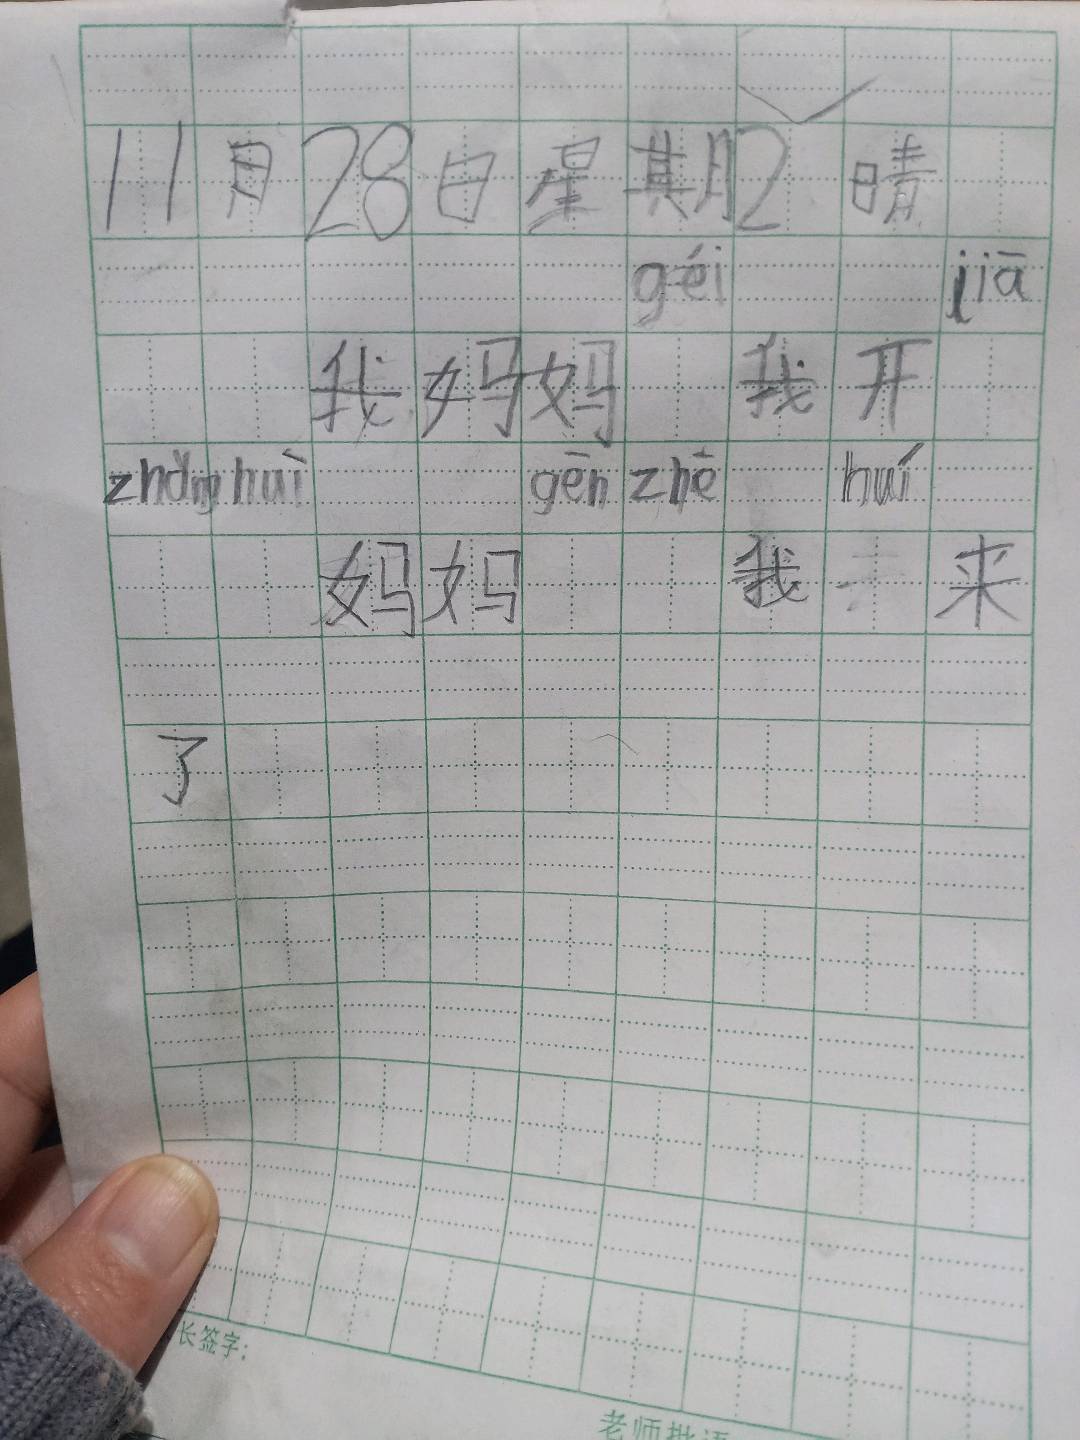 11月28日星期2晴
géi jiā
我妈妈 我开
zhǎng huì gēn zhē huí
妈妈 我 来
了
长签字:
老师批语